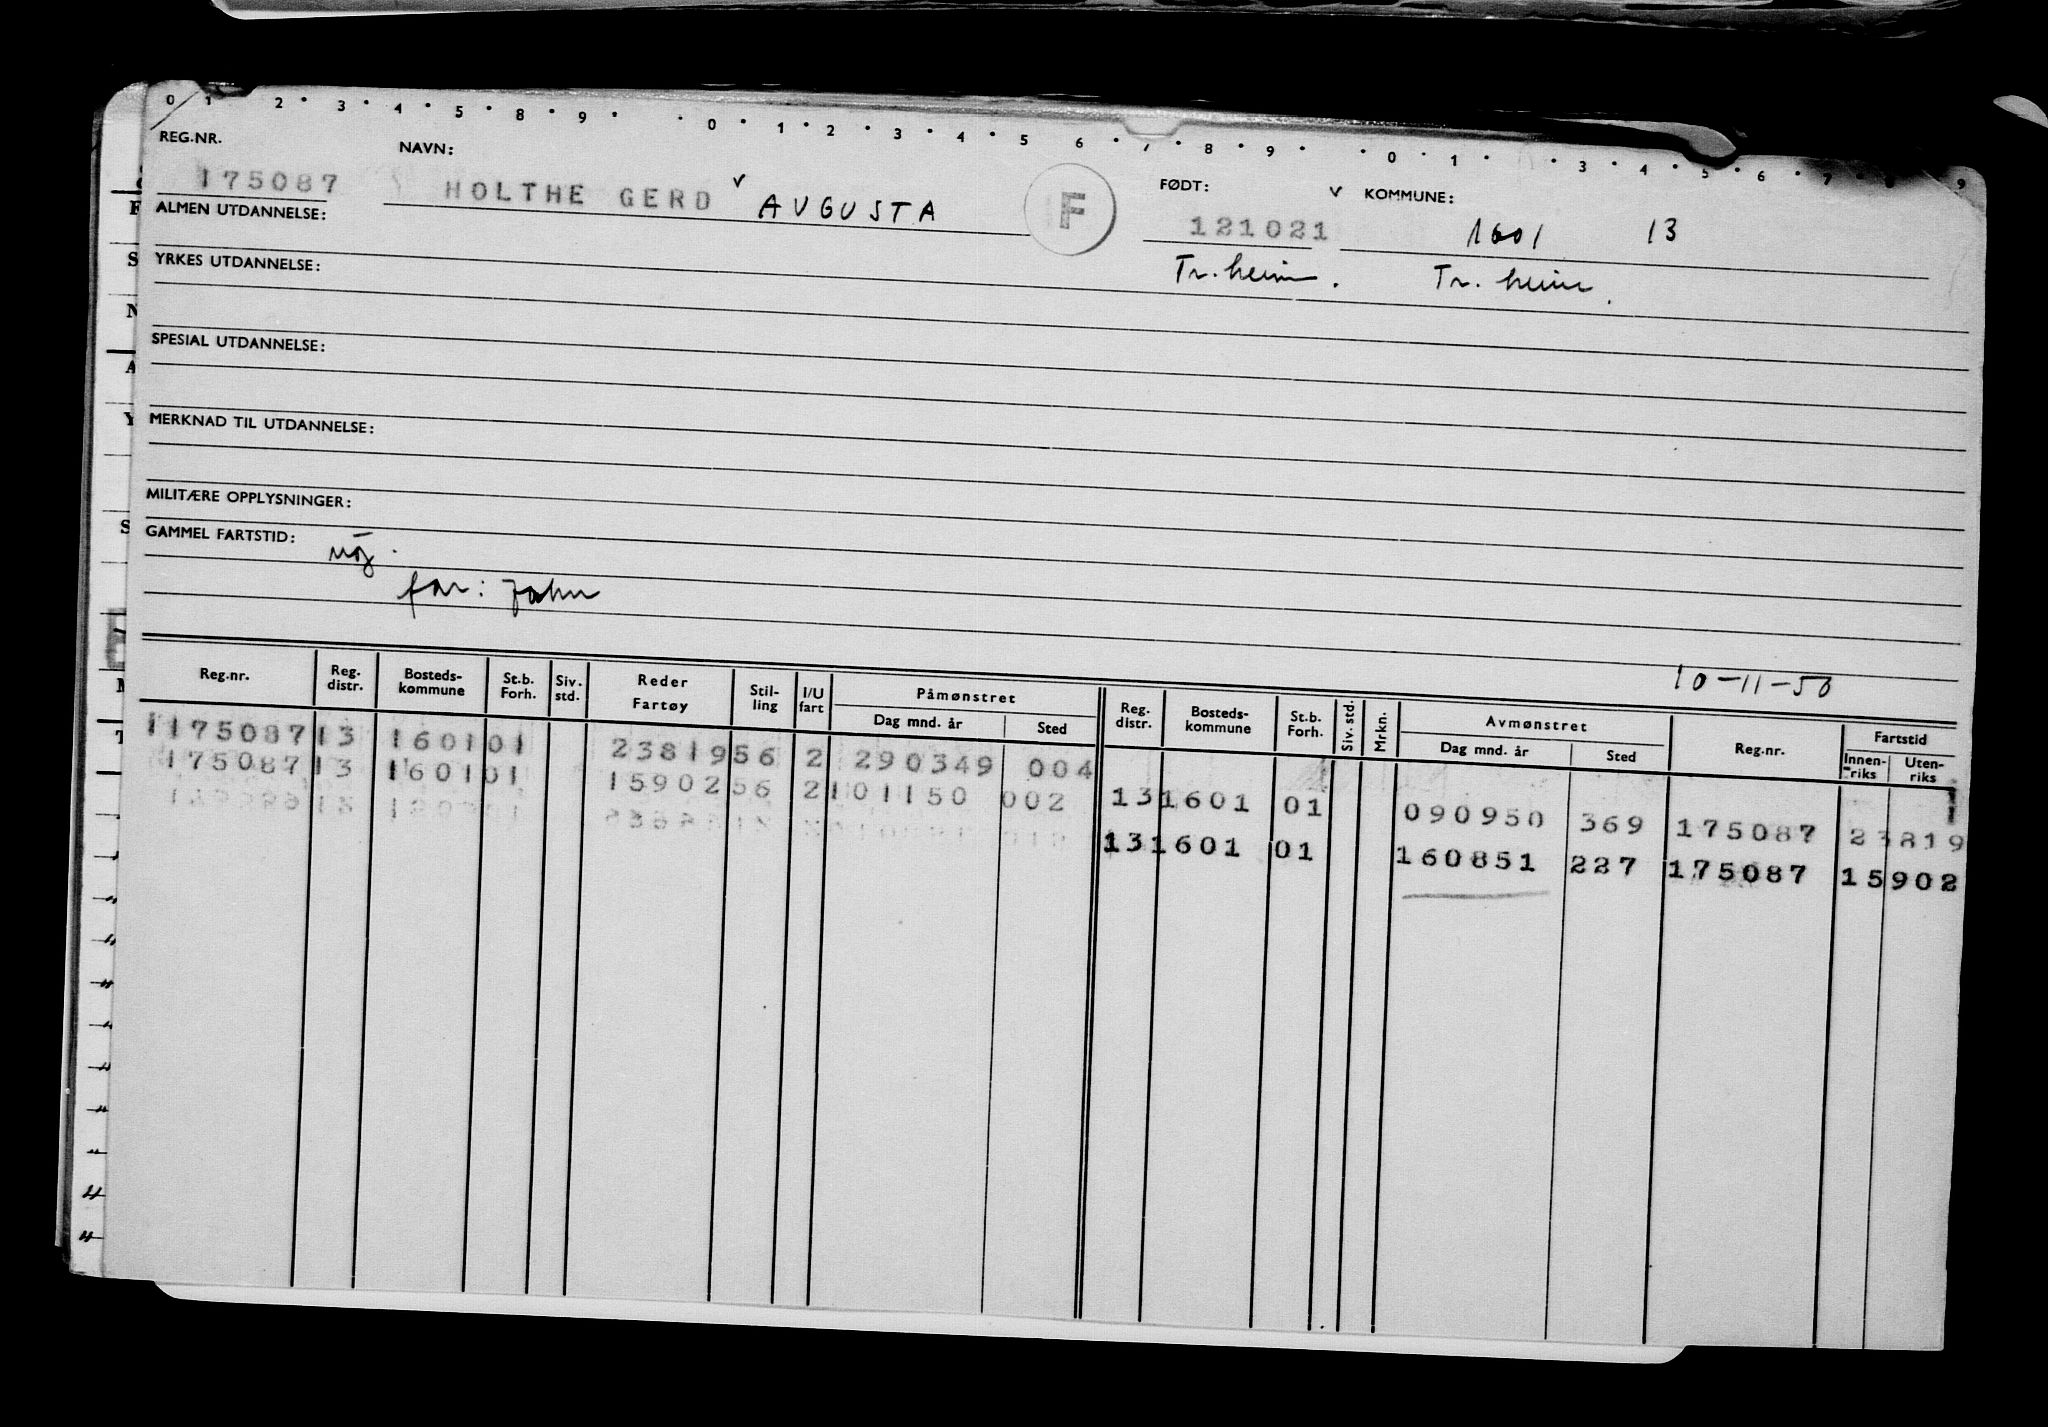 0 1 2 3 4 5 8 9 0 1 2 3 4 5 6 7 8 9 0 1 3 4 5 6 7 8 9
REG.NR. NAVN: FØDT: v KOMMUNE:
175087 HOLTHE GERD v AUGUSTA F 121021 1601 13
ALMEN UTDANNELSE:
Tr.heim. Tr. heim.
YRKES UTDANNELSE:
SPESIAL UTDANNELSE:
MERKNAD TIL UTDANNELSE:
MILITÆRE OPPLYSNINGER:
GAMMEL FARTSTID:
far: John
10-11-50
Reg.nr. Reg. distr. Bosteds-kommune St.b. Forh. Siv. std. Reder Fartøy Stil-ling I/U fart Påmønstret Dag mnd. år Sted Reg. distr. Bosteds-kommune St.b. Forh. Siv. std. Mrkn. Avmønstret Dag mnd. år Sted Reg.nr. Fartstid Innen-riks Uten-riks
1175087 13 1601 01 23819 56 2 290349 004
175087 13 1601 01 15902 56 2 101150 002
13 1601 01 090950 369 175087 23819
13 1601 01 160851 227 175087 15902